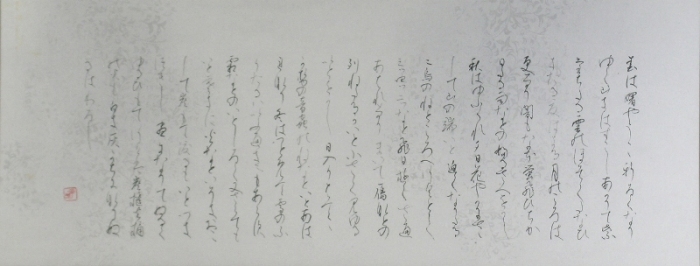 春は曙やう〱しろくなり
ゆく山きはすこしあかりて紫
たちたる雲のほそくたなひ
きたる夏はよる月のころは
さらなり闇もなほ蛍飛ちか
ひたる雨なとのふるさへをかし
秋は夕くれ夕日花やかにさ
して山の端いと近くなりたる
に烏のねところへゆくとて
三四二なと飛行さへ
あはれなりまして雁なとの
つらねたるかいとちひさくみゆる
いとをかし日入りはてゝ
風の音虫の音なといとあは
れなり冬はつとめて雪のふ
りたるはいふへきにもあらす
霜なとのいとしろくまたさらても
いとさむきに火なといそきおこ
して炭もてわたるもいとつき
つきし昼になりてぬるく
ゆるひもていけは炭櫃火桶
の火もしろき灰かちになりぬる
はわろし